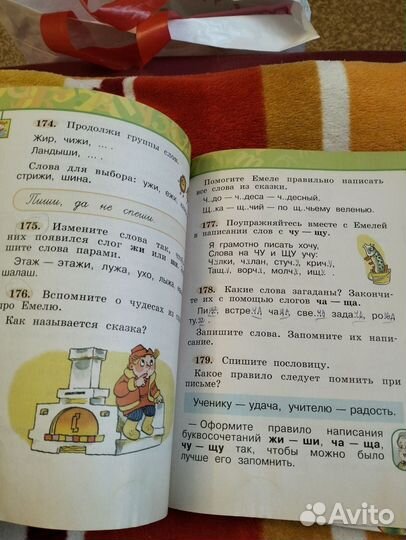 174. Продолжи группы слов.
Жир, чижи, ... .
Ландыши, ... .
Слова для выбора: ужи, ежи,
стрижи, шина.
Пиши, да не спеши.
175. Измените слова так, что
них появился слог жи или
шите слова парами.
Этаж — этажи, лужа, ухо, лыжа,
шалаш.
176. Вспомните о чудесах из ск
про Емелю.
Как называется сказка?
Помогите Емеле правильно написать
все слова из сказки.
Ч..до — ч..деса — ч..десный.
Щ..ка — щ..чий — по щ..чьему веленью.
177. Поупражняйтесь вместе с Емелей
в написании слов с чу — щу.
Я грамотно писать хочу,
Слова на ЧУ и ЩУ учу:
Ч..лки, ч..лан, стуч.., крич..,
Тащ.., ворч.., молч.., ищ.. .
178. Какие слова загаданы? Закончи-
те их с помощью слогов ча — ща.
Пи , встре ча , ча ша, све ча , зада ча , ро ща ,
ту .
Запишите слова. Запомните их напи-
сание.
179. Спишите пословицу.
Какое правило следует помнить при
письме?
Ученику — удача, учителю — радость.
— Оформите правило написания
буквосочетаний жи — ши, ча — ща,
чу — щу так, чтобы можно было
лучше его запомнить.
Avito